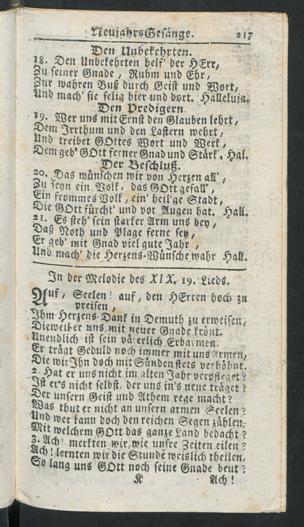 NeujahrsGesänge. 217
Den Unbekehrten.
18. Den Unbekehrten helf' der HErr,
Zu seiner Gnade, Ruhm und Ehr,
Zur wahren Buß durch Geist und Wort,
Und mach' sie selig hier und dort. Halleluja.
Den Predigern.
19. Wer uns mit Ernst den Glauben lehrt,
Dem Irrthum und den Lastern wehrt,
Und treibet GOttes Wort und Werk,
Dem geb' GOtt ferner Gnad und Stärk'. Hal.
Der Beschluß.
20. Das wünschen wir von Herzen all',
Zu seyn ein Volk, das GOtt gefall',
Ein frommes Volk, ein' heil'ge Stadt,
Die GOtt fürcht' und vor Augen hat. Hall.
21. Es steh' sein starker Arm uns bey,
Daß Noth und Plage ferne sey,
Er geb' mit Gnad viel gute Jahr,
Und mach' die Herzens-Wünsche wahr Hall.
In der Melodie des XIX. 19. Lieds.
Auf, Seelen! auf, den HErren hoch zu
preisen,
Ihm Herzens Dank in Demuth zu erweisen,
Dieweil er uns mit neuer Gnade krönt.
Unendlich ist sein väterlich Erbarmen.
Er trägt Geduld noch immer mit uns Armen,
Die wir Ihn doch mit Sünden stets verhöhnt.
2. Hat er uns nicht im alten Jahr verpfleget?
Ist er's nicht selbst, der uns in's neue träget?
Der unsern Geist und Athem rege macht?
Was thut er nicht an unsern armen Seelen?
Und wer kann doch den reichen Segen zählen,
Mit welchem GOtt das ganze Land bedacht?
3. Ach! merkten wir, wie unsre Zeiten eilen?
Ach! lernten wir die Stunde weislich theilen,
So lang uns GOtt noch seine Gnade beut?
K Ach!